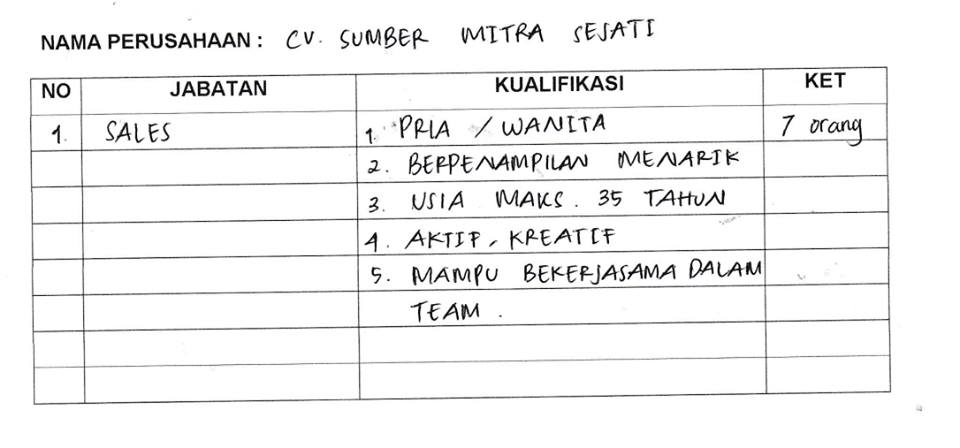 NAMA PERUSAHAAN : CV. SUMBER MITRA SEJATI
NO JABATAN KUALIFIKASI KET
1. SALES 1. PRIA / WANITA 7 orang
2. BERPENAMPILAN MENARIK
3. USIA MAKS. 35 TAHUN
4. AKTIF, KREATIF
5. MAMPU BEKERJASAMA DALAM
TEAM.